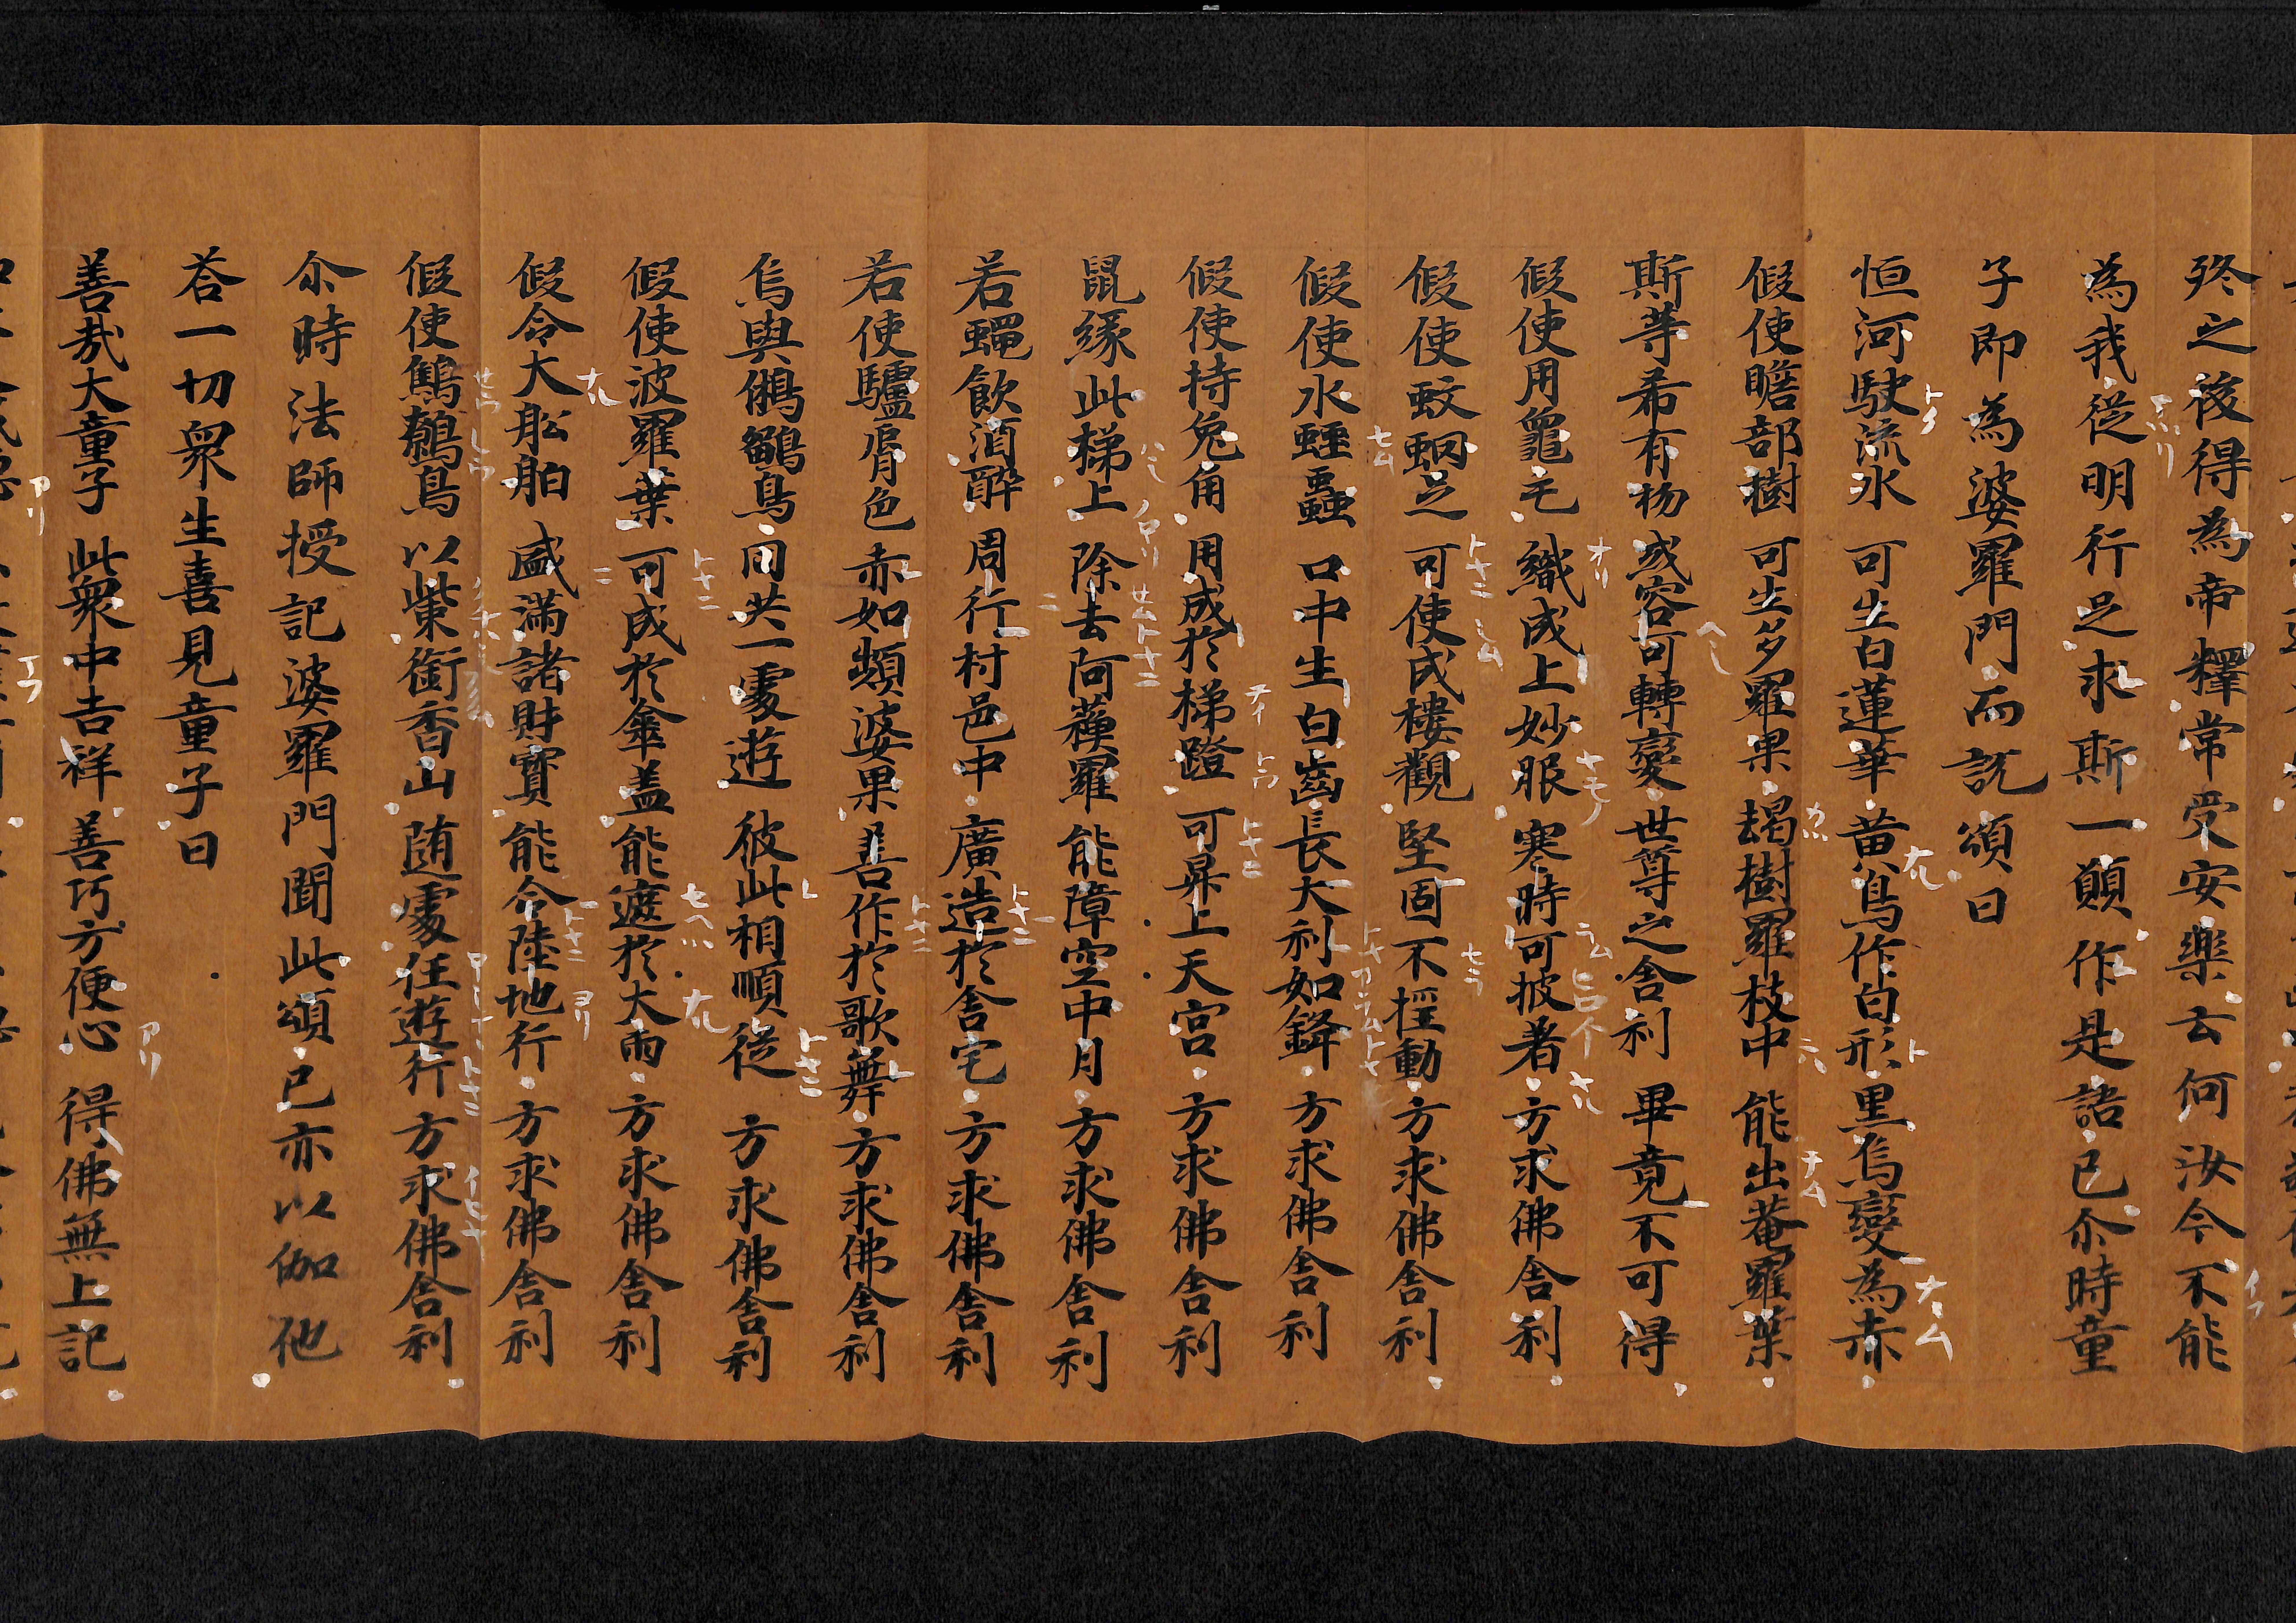 終之後得為帝釋常受安樂云何汝今不能
為我從明行足求斯一願作是語已尒時童
子即為婆羅門而説頌曰
恒河駛流水 可生白蓮華 黄鳥作白形 黒烏變為赤
假使瞻部樹 可生多羅果 朅樹羅枝中 能出菴羅葉
斯等希有物 或容可轉變 世尊之舍利 畢竟不可得
假使用龜毛 織成上妙服 寒時可披著 方求佛舍利
假使蚊蚋足 可使成樓觀 堅固不揺動 方求佛舍利
假使水蛭蟲 口中生白齒 長大利如鋒 方求佛舍利
假使持兔角 用成於梯蹬 可昇上天宮 方求佛舍利
鼠緣此梯上 除去阿蘓羅 能障空中月 方求佛舍利
若蠅飲酒醉 周行村邑中 廣造於舍宅 方求佛舍利
若使驢脣色 赤如頻婆果 善作於歌舞 方求佛舍利
烏與鵂鶹鳥 同共一處遊 彼此相順從 方求佛舍利
假使波羅葉 可成於傘盖 能遮於大雨 方求佛舍利
假令大舩舶 盛滿諸財寳 能令陸地行 方求佛舍利
假使鷦鷯鳥 以𭉨銜香山 随處任遊行 方求佛舍利
尒時法師授記婆羅門聞此頌已亦以伽他
荅一切衆生喜見童子曰
善哉大童子 此衆中吉祥 善巧方便心 得佛無上記